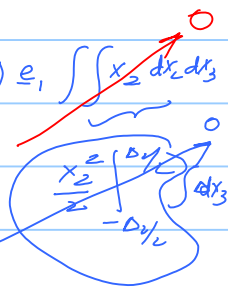 0
) e₁ ∫∫ x₂ dx₂ dx₃
0
x₂²/2 |_{-Δ₂/2}^{Δ₂/2} ∫ dx₃